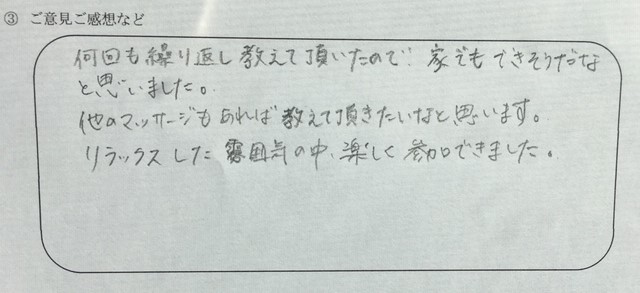 ③ ご意見ご感想など
何回も繰り返し教えて頂いたので、家でもできそうだな
と思いました。
他のマッサージもあれば教えて頂きたいなと思います。
リラックスした雰囲気の中、楽しく参加できました。